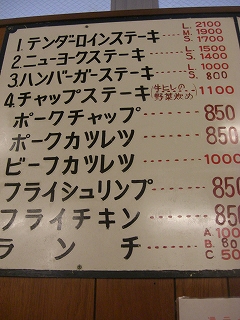 1.テンダーロインステーキ L. 2100 M. 1900 S. 1700
2.ニューヨークステーキ L. 1500 S. 1400
3.ハンバーガーステーキ L. 1000 S. 800
4.チャップステーキ(牛ヒレの野菜炒め) 1100
ポークチャップ 850
ポークカツレツ 850
ビーフカツレツ 1000
フライシュリンプ 850
フライチキン 850
ランチ A. 100 B. 80 C. 50